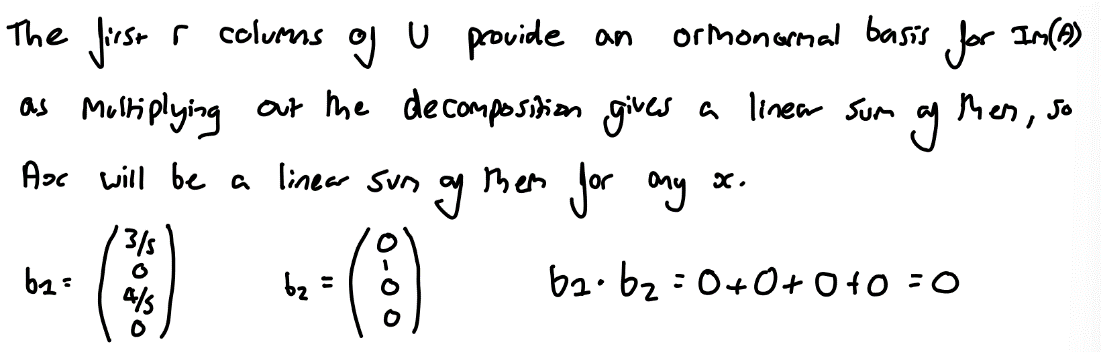 The first r columns of U provide an orthonormal basis for Im(A)
as multiplying out the decomposition gives a linear sum of them, so
Ax will be a linear sum of them for any x.
b₁ = (3/5 0 4/5 0) b₂ = (0 1 0 0) b₁·b₂ = 0+0+0+0 = 0